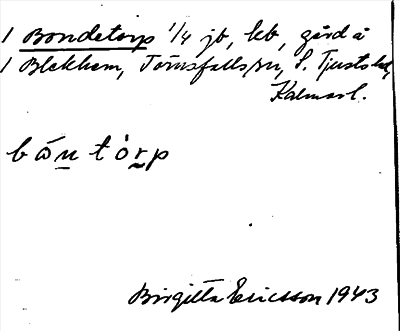 1 Bondetorp 1/4 jb, kb, gård å
1 Blekhem, Törnsfalls sn, S. Tjusts hd,
Kalmar l.
bȯ́n tórp
Birgitta Ericsson 1943